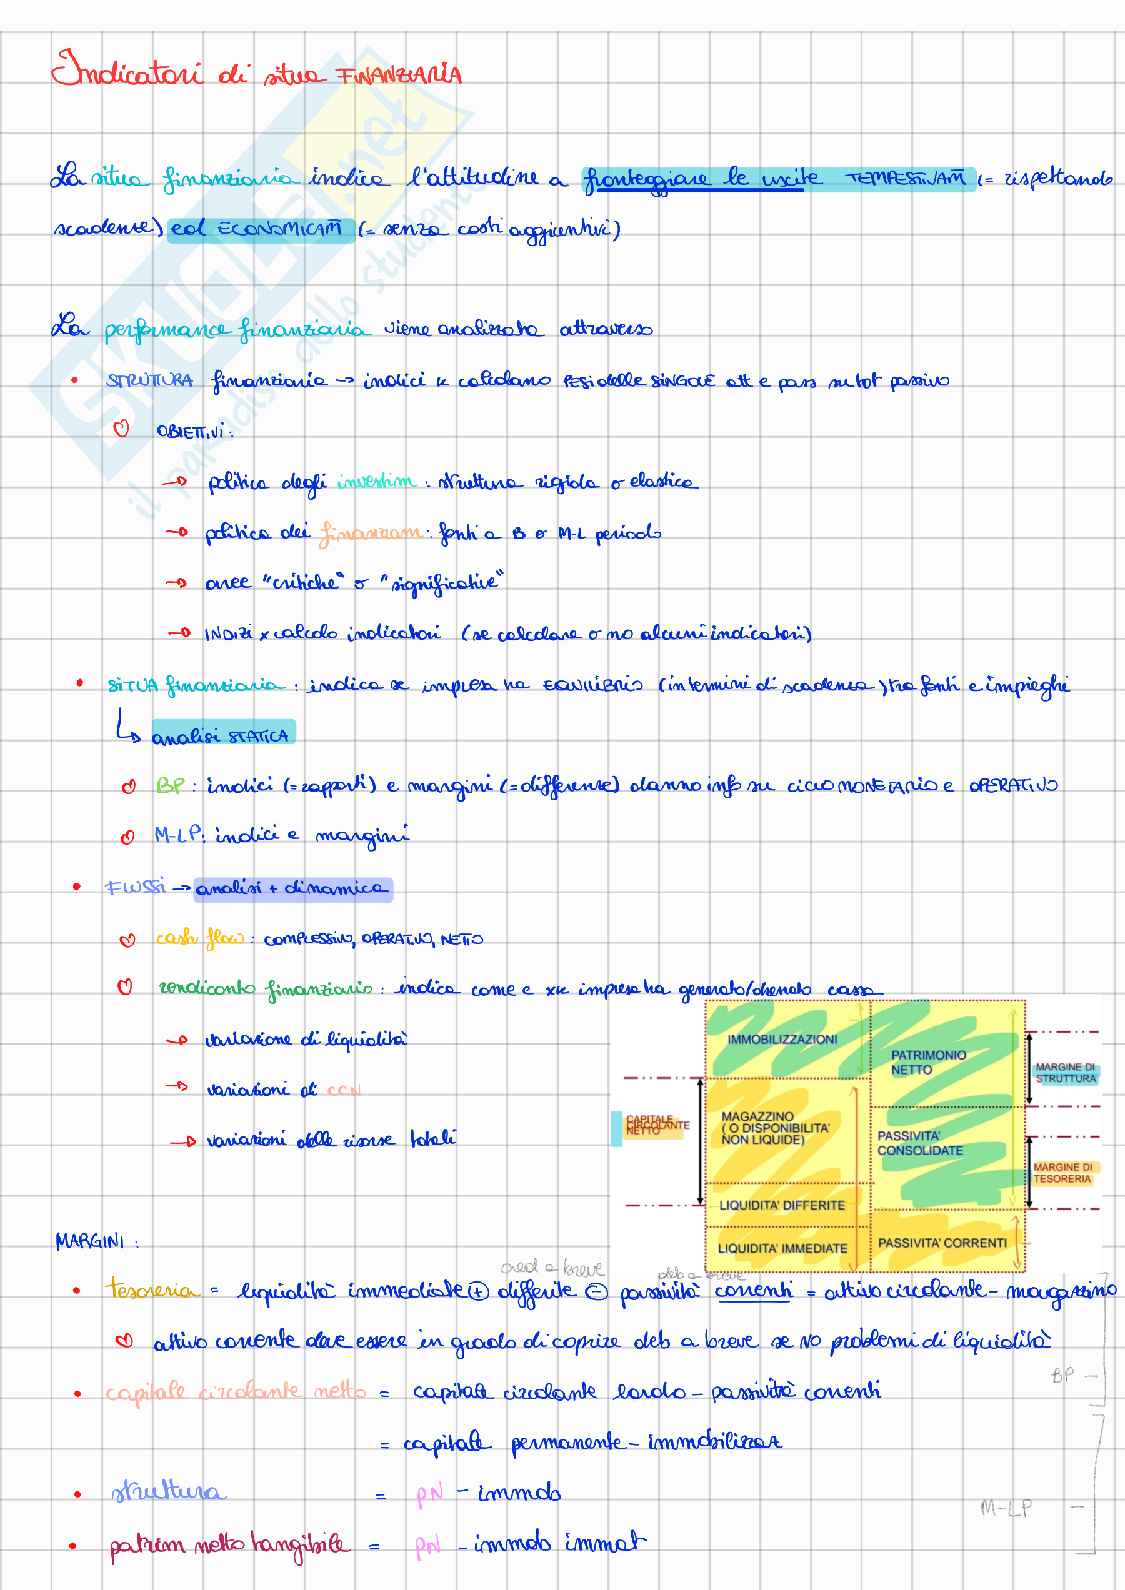 Indicatori di situa FINANZIARIA
La situa finanziaria indica l'attitudine a fronteggiare le uscite TEMPESTIVAM (= rispettando
scadenze) ed ECONOMICAM (= senza costi aggiuntivi)
La performance finanziaria viene analizzata attraverso
• STRUTTURA finanziaria → indici x calcolano PESI delle SINGOLE att e pass su tot passivo
OBIETTIVI:
→ politica degli investim: struttura rigida o elastica
→ politica dei finanziam: fonti a B o M-L periodo
→ aree "critiche" o "significative"
→ INDIZI x calcolo indicatori (se calcolare o no alcuni indicatori)
• SITUA finanziaria: indica se impresa ha EQUILIBRIO (in termini di scadenza) tra fonti e impieghi
↳ analisi STATICA
BP: indici (= rapporti) e margini (= differenze) danno info su ciclo MONETARIO e OPERATIVO
M-LP: indici e margini
• FLUSSI → analisi + dinamica
cash flow: COMPLESSIVO, OPERATIVO, NETTO
rendiconto finanziario: indica come e xk impresa ha generato/drenato cassa
→ variazione di liquidità
→ variazioni di CCN
→ variazioni delle risorse totali
IMMOBILIZZAZIONI
PATRIMONIO
NETTO
MARGINE DI
STRUTTURA
CAPITALE
CIRCOLANTE
NETTO
MAGAZZINO
( O DISPONIBILITA'
NON LIQUIDE)
PASSIVITA'
CONSOLIDATE
MARGINE DI
TESORERIA
LIQUIDITA' DIFFERITE
LIQUIDITA' IMMEDIATE
PASSIVITA' CORRENTI
MARGINI:
cred a breve
deb a breve
• tesoreria = liquidità immediate (+) differite (-) passività correnti = attivo circolante - magazzino
attivo corrente deve essere in grado di coprire deb a breve se no problemi di liquidità
BP
• capitale circolante netto = capitale circolante lordo - passività correnti
= capitale permanente - immobilizzaz
• struttura = PN - immob
M-LP
• patrim netto tangibile = PN - immob immat
SKUOLA.net
il paradiso dello studente